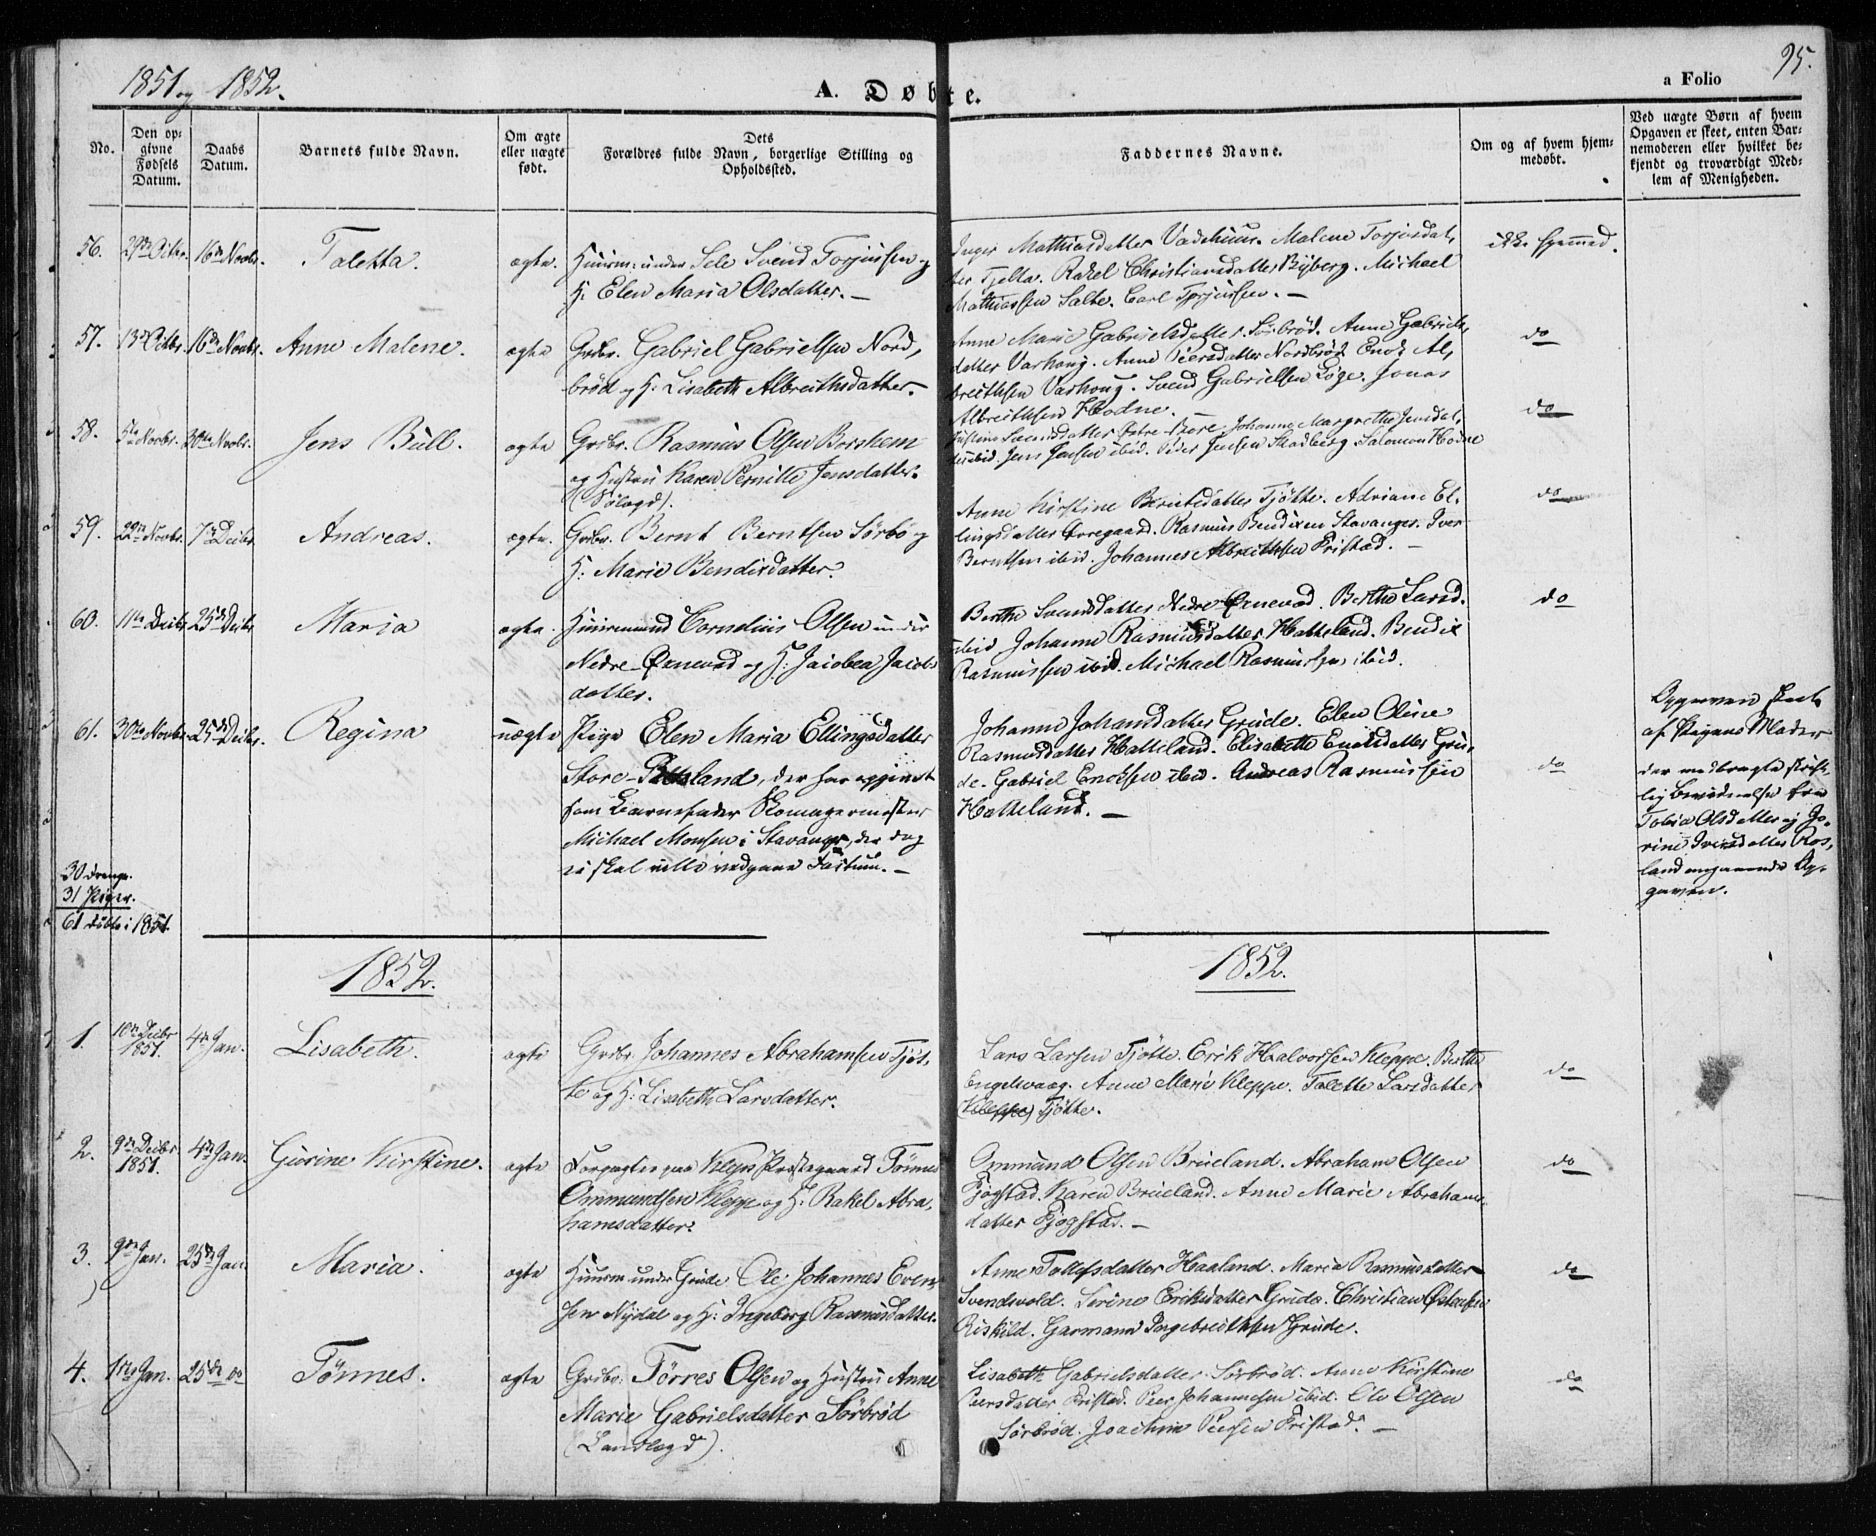 1851 og 1852.
A. Døbte.
a Folio
95.
No.
Den op-
givne
Fødsels
Datum.
Daabs
Datum.
Barnets fulde Navn.
Om ægte
eller uægte
født.
Dets
Forældres fulde Navn, borgerlige Stilling og
Opholdssted.
Faddernes Navne.
Om og af hvem hjem-
medøbt.
Ved uægte Børn af hvem
Opgaven er skeet, enten Bar-
nemoderen eller hvilket be-
kjendt og troværdigt Med-
lem af Menigheden.
56. 29de Octbr. 16de Novbr. Taletta. ægte.
Huusm: under Sele Svend Torjussen og
H: Elen Maria Olsdatter. —
Inger Mathiasdatter Vadehuus. Malene Torjusdat,
ter Tjelta. Rakel Christiansdatter Byberg. Michael
Mathiassen Salte. Carl Torjussen. —
ikke hjemmed.
57. 13de Octbr. 16de Novbr. Anne Malene. ægte
Grdbr. Gabriel Gabrielsen Nord,
brød og H: Lisabeth Albreithsdatter.
Anne Marie Gabrielsdatter Sørbrød. Anne Gabriels,
datter Varhoug. Anne Peersdatter Nordbrød. Enok Al,
breithsen Varhoug. Svend Gabrielsen Søge. Jonas
Albreithsen Hodne.
do
58. 5te Novbr. 30te Novbr. Jens Bull. ægte
Grdbr. Rasmus Olsen Borshem
og Hustru Karen Pernille Jensdatter.
(Sølægd).
Svendsdatter Østre Bore. Johanne Margrethe Jensdat,
ter ibid. Jens Jensen ibid. Peder Jensen Skadberg. Salomon Hodne
do
59. 22de Novbr. 7de Decbr. Andreas. ægte.
Grdbr. Bernt Berntsen Sørbø og
H: Marie Bendixdatter.
Anne Kirstine Berntsdatter Tjøtte. Adriane El,
lingsdatter Orregaard. Rasmus Bendixen Stavanger. Iver
Berntsen ibid. Johannes Albreithsen Fristad. —
do
60. 11te Decbr. 25de Decbr. Maria ægte.
Huusmand Cornelius Olsen under
Nedre Ørnevad og H: Jacobea Jacobs
datter.
Berthe Svendsdatter Nedre Ørnevad. Berthe Larsd.
ibid Johanne Rasmusdatter Hatteland. Bendix
Rasmussen ibid. Michael Rasmussen ibid.
do
61. 30te Novbr. 25de Decbr. Regina uægte
Pige Elen Maria Ellingsdatter
Store land, der har opgivet
som Barnefader Skomagermester
Michael Monsen i Stavanger, der dog
ei skal ville vedgaae Factum. —
Johanne Johansdatter Grude. Elen Oline
Rasmusdatter Hatteland. Elisabeth Enoksdatter Gru,
de. Gabriel Enoksen ibid. Andreas Rasmussen
Hatteland. —
do
Opgaven skeet
af Pigens Moder
der medbragte skrift,
lig Bevidnelse fra
Tobia Olsdatter og Jo,
rine Iversdatter Ros,
land angaaende Op,
gaven.
30 drenge.
31 Piger.
61 døbte i 1851.
1852.
1852.
1. 10de Decbr
1851. 4de Jan. Lisabeth. ægte
Grdbr. Johannes Abrahamsen Tjøt,
te og H: Lisabeth Larsdatter.
Lars Larsen Tjøtte. Erik Halvorsen Kleppe. Berthe
Engelsvaag. Anne Marie Kleppe. Talette Larsdatter
(Kleppe) Tjøtte.
do
2. 9de Decbr
1851. 4de Jan. Gurine Kirstine. ægte
Forpagter paa Klep Præstegaard Tönnes
Ommundsen Kleppe og H: Rakel Abra,
hamsdatter.
Ommund Olsen Brueland. Abraham Olsen
Fjogstad. Karen Brueland. Anne Marie Abrahams
datter Fjogstad. —
do
3. 9de Jan. 25de Jan. Maria. ægte
Huusm under Grude Ole Johannes Even,
sen Nydal og H: Ingeborg Rasmusdatter.
Anne Tollefsdatter Haaland. Maria Rasmusdatter
Svendsvold. Serine Eriksdatter Grude. Christian Østensen
Riskild. Garmann Ingebrethsen Grude.
do
4. 1ste Jan. 25de do Tönnes. ægte
Grdbr. Törres Olsen og Hustru Anne
Marie Gabrielsdatter Sörbröd
(Landlægd).
Lisabeth Gabrielsdatter Sörbröd. Anne Kirstine
Peersdatter Fristad. Peer Johannesen ibid. Ole Olsen
Sörbröd. Joachim Peersen Fristad. —
do